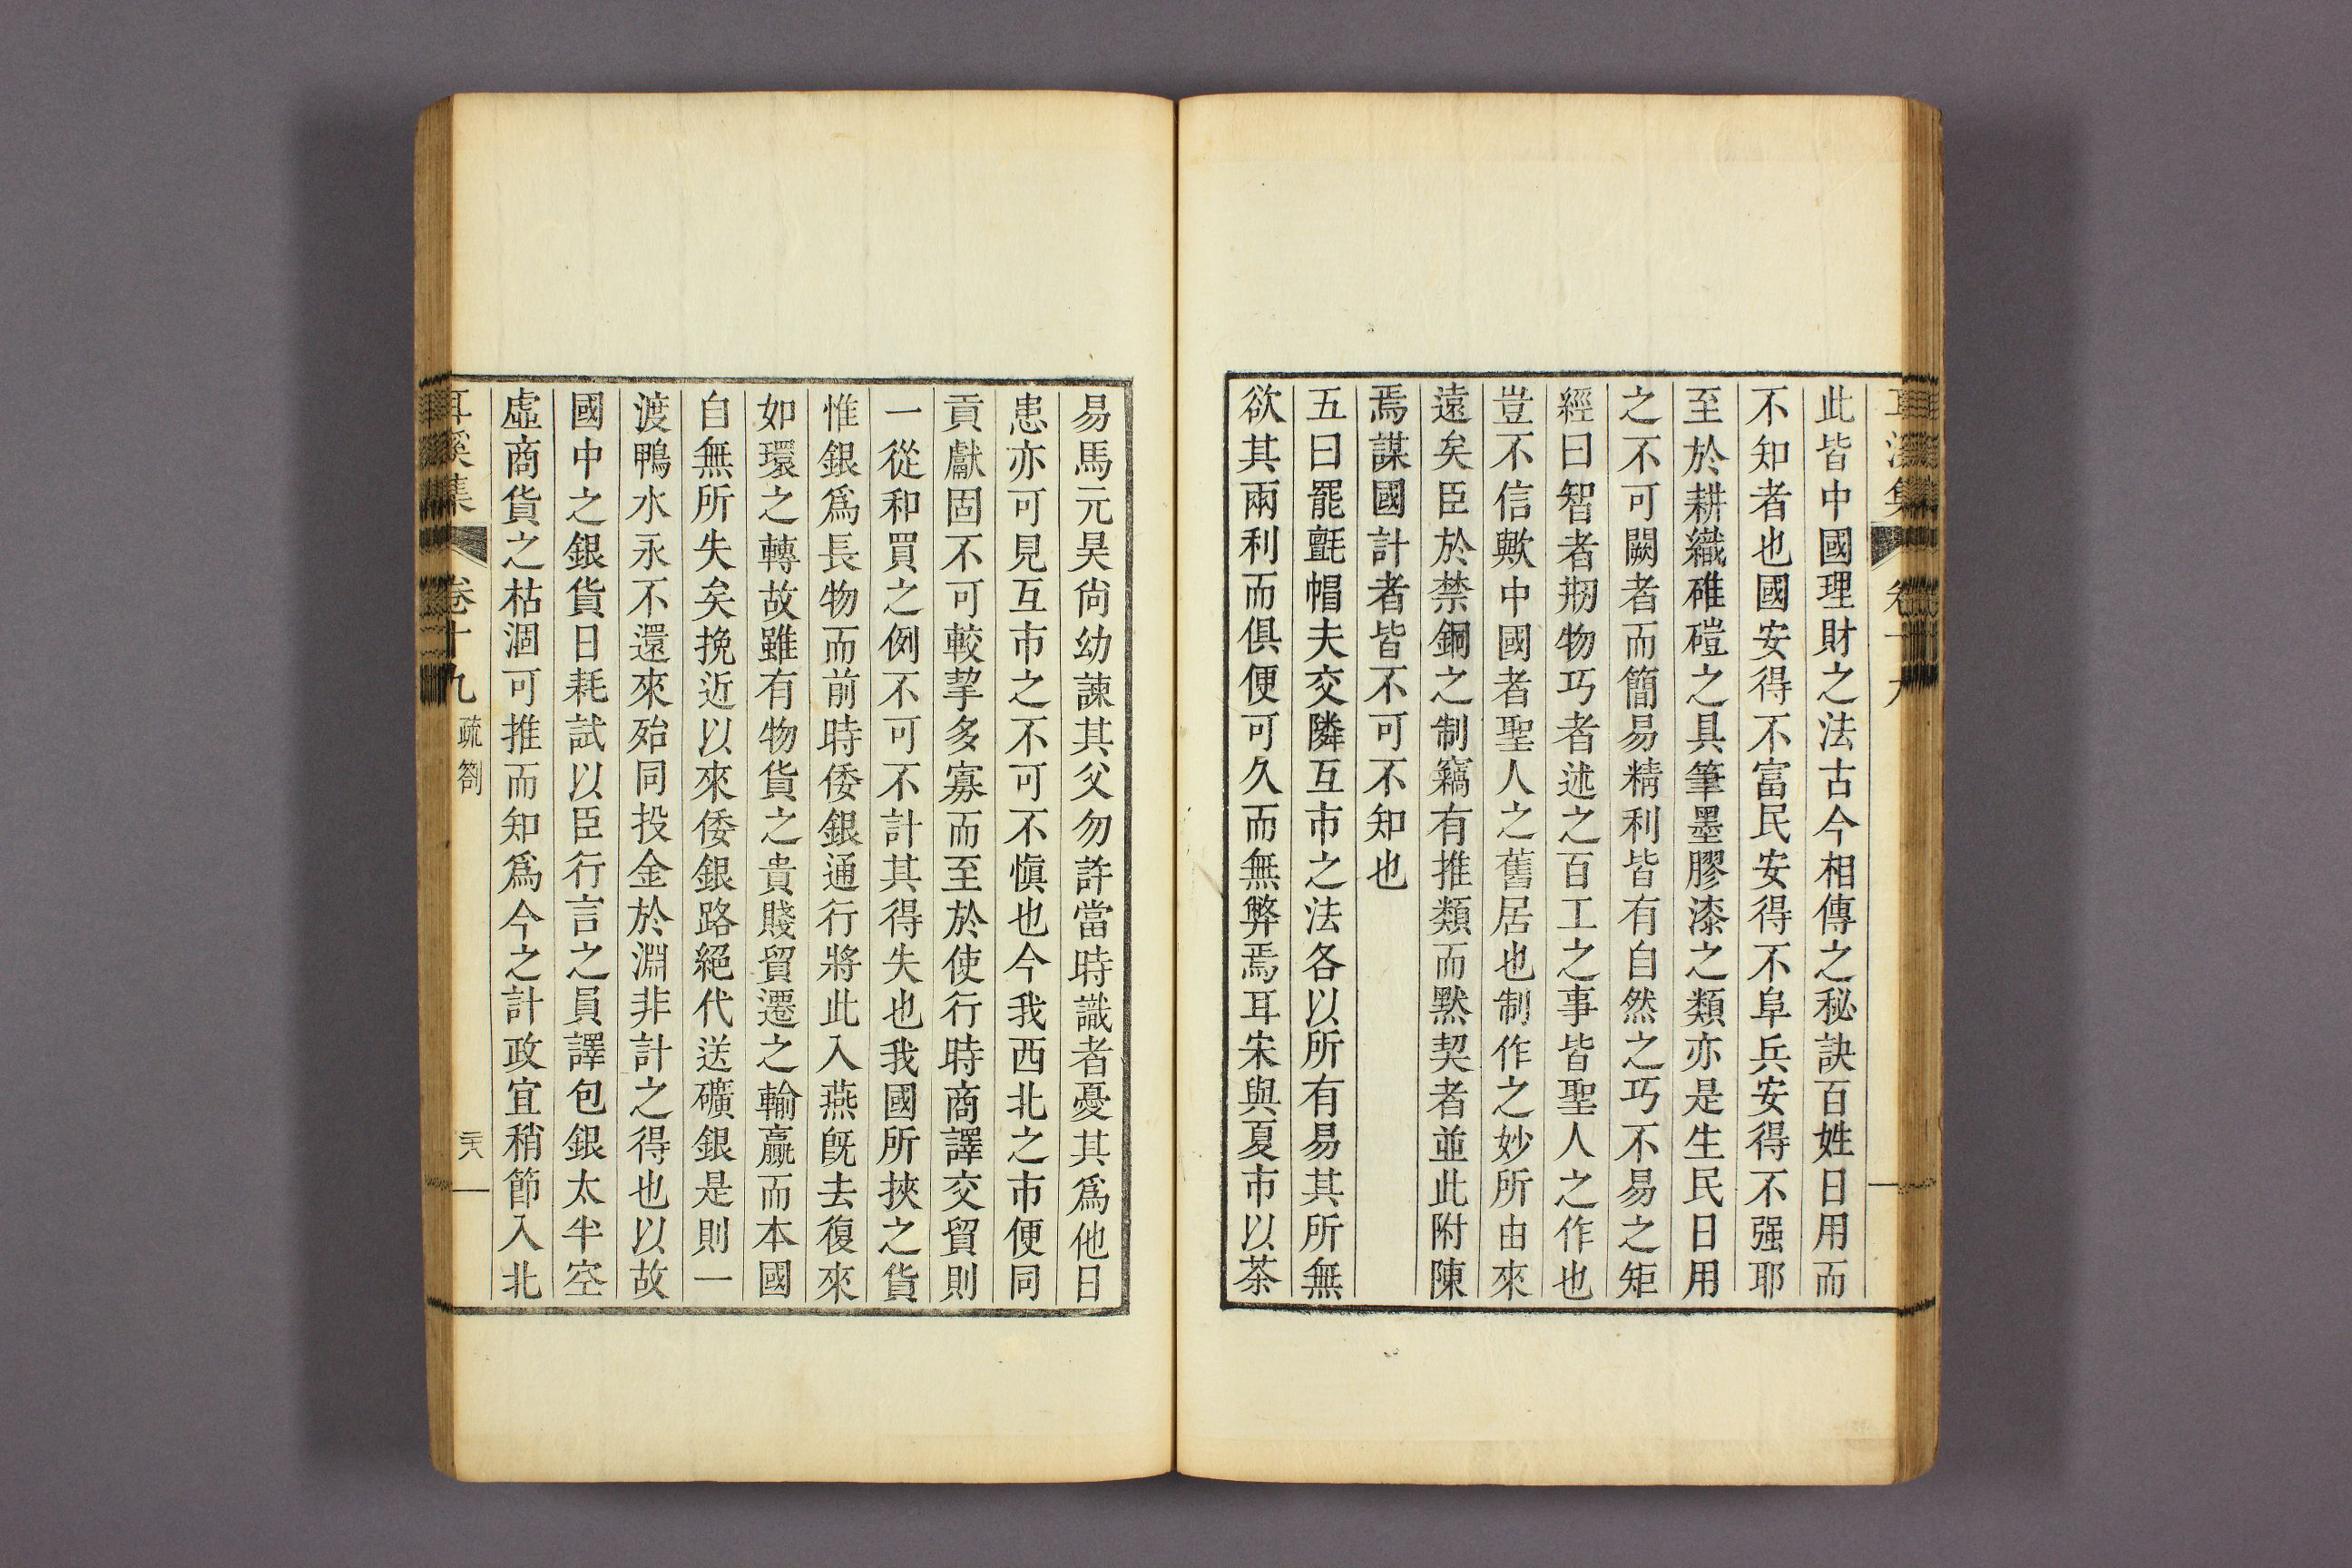 此皆中國理財之法古今相傳之秘訣百姓日用而
不知者也國安得不富民安得不阜兵安得不强耶
至於耕織碓磑之具筆墨膠漆之類亦是生民日用
之不可闕者而簡易精利皆有自然之巧不易之矩
經曰智者刱物巧者述之百工之事皆聖人之作也
豈不信歟中國者聖人之舊居也制作之妙所由來
遠矣臣於禁銅之制竊有推類而默契者並此附陳
焉謀國計者皆不可不知也
五曰罷氊帽夫交隣互市之法各以所有易其所無
欲其兩利而俱便可久而無弊焉耳宋與夏市以茶
易馬元昊尙幼諫其父勿許當時識者憂其爲他日
患亦可見互市之不可不愼也今我西北之市便同
貢獻固不可較挈多寡而至於使行時商譯交貿則
一從和買之例不可不計其得失也我國所挾之貨
惟銀爲長物而前時倭銀通行將此入燕旣去復來
如環之轉故雖有物貨之貴賤貿遷之輸贏而本國
自無所失矣挽近以來倭銀路絕代送礦銀是則一
渡鴨水永不還來殆同投金於淵非計之得也以故
國中之銀貨日耗試以臣行言之員譯包銀太半空
虛商貨之枯涸可推而知爲今之計政宜稍節入北
耳溪集 卷十九 疏箚 二十八